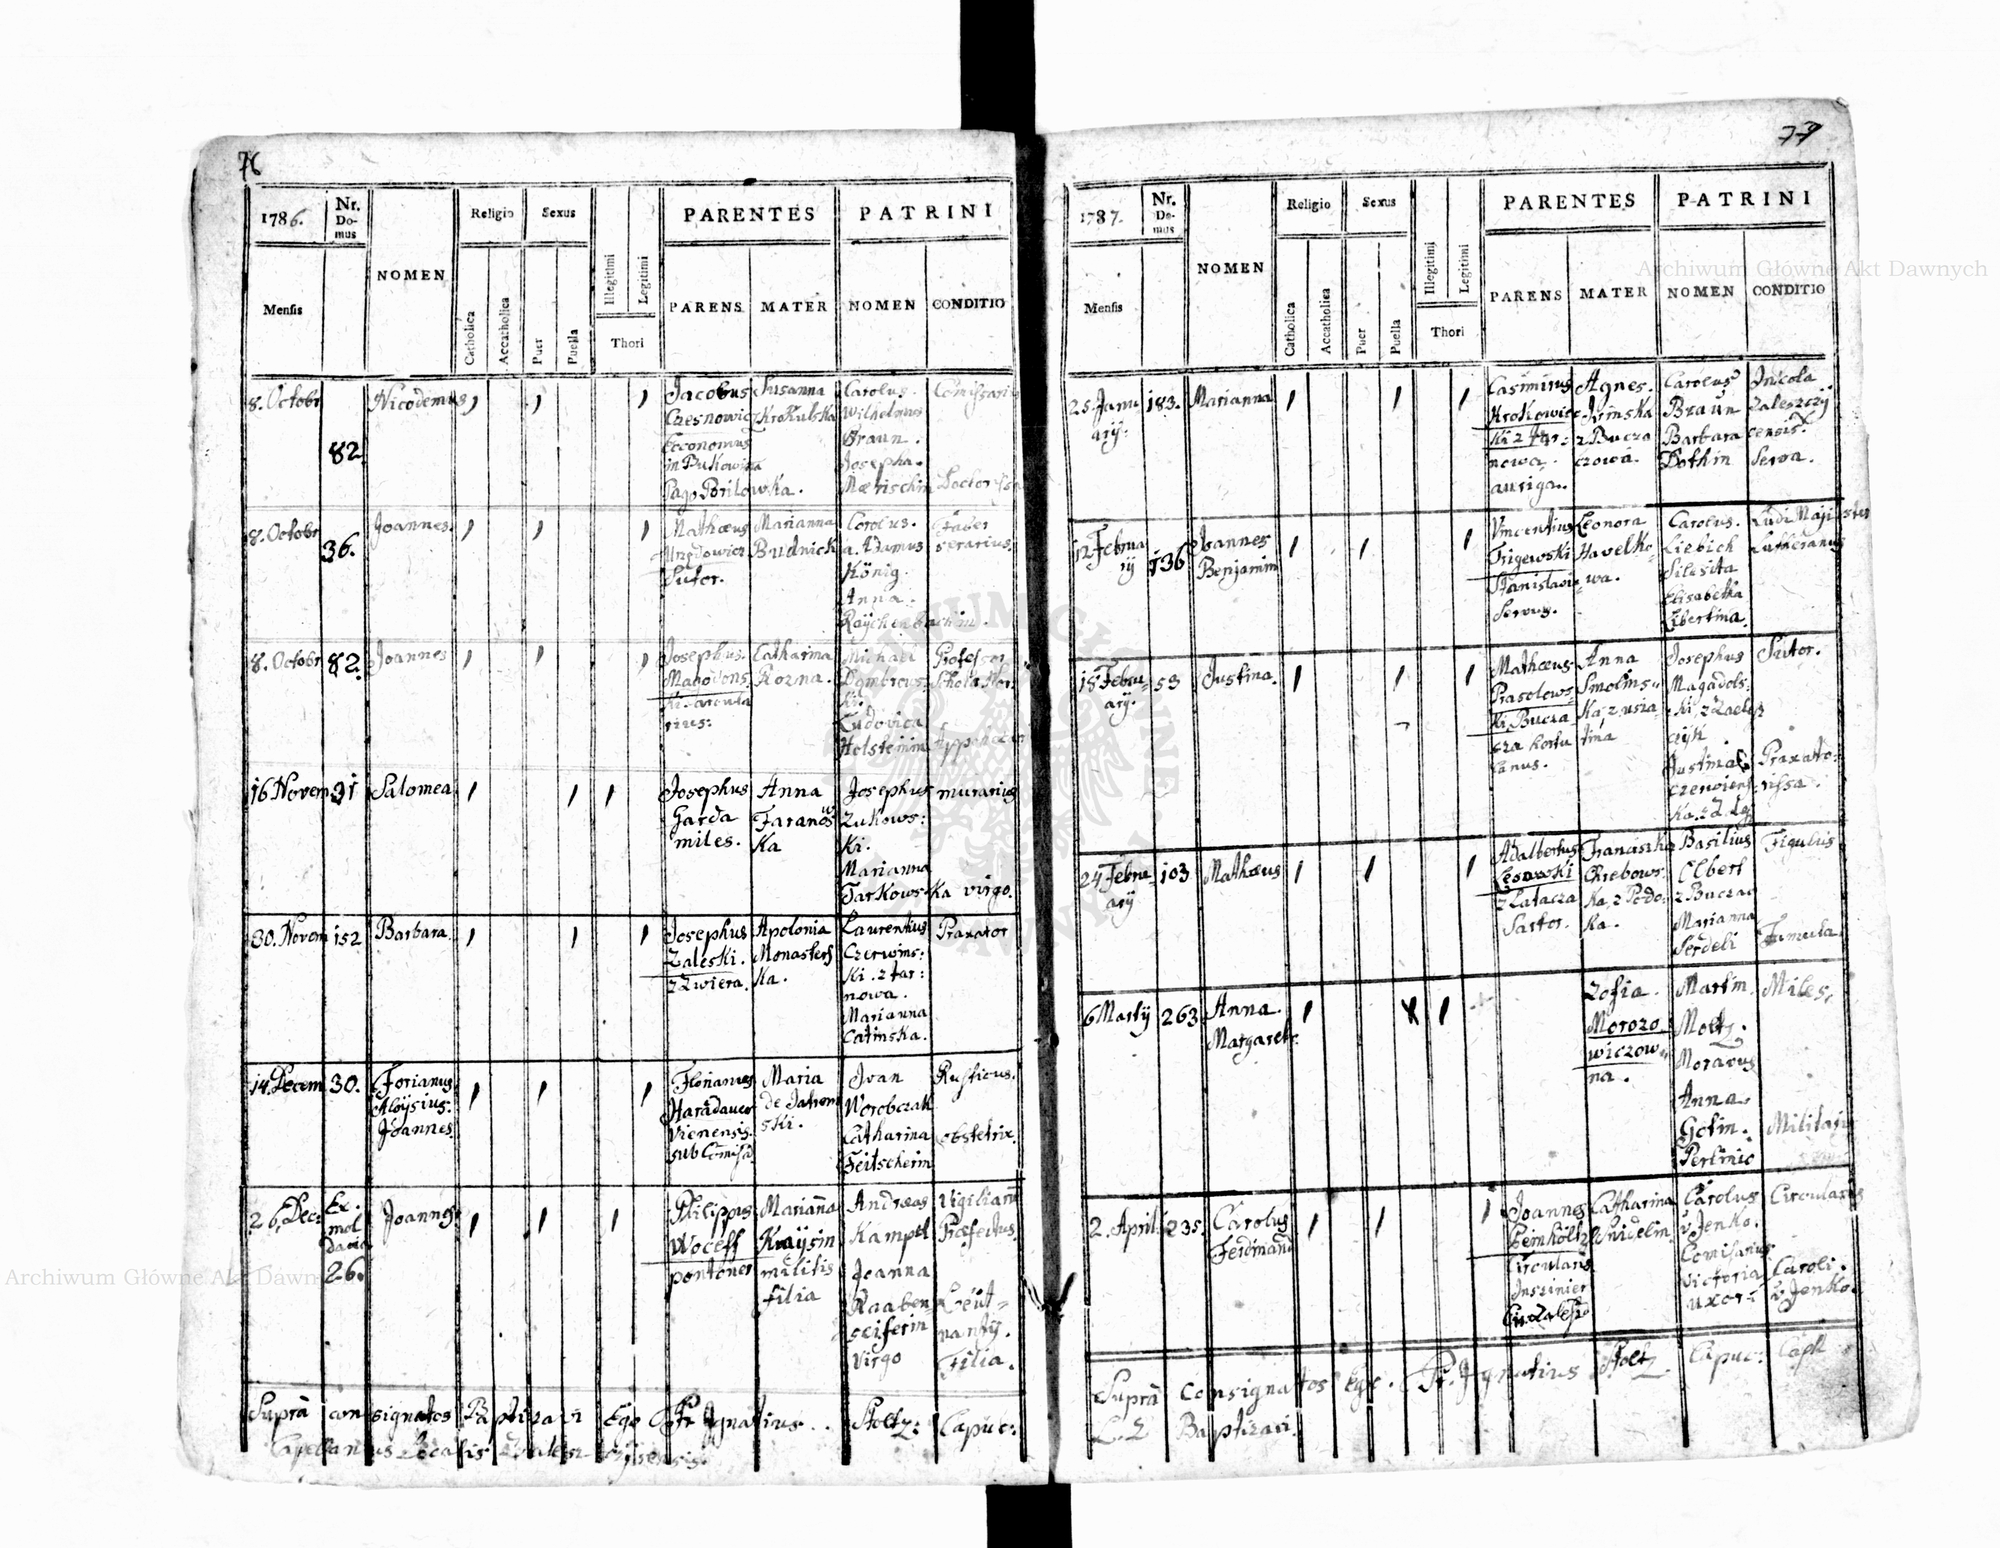 76
1786.
Nr. Domus
NOMEN
Religio
Sexus
PARENTES
PATRINI
Mensis
Catholica
Accatholica
Puer
Puella
Illegitimi
Legitimi
Thori
PARENS
MATER
NOMEN
CONDITIO
8. Octobr
82
Nicodemus
Jacobus
Czesnowic
Economus
in Bukowina
Pago Brilowka.
Susanna
Krokulska
Carolus.
Wilhelmus
Braun.
Josepha.
Mærischin
Comissarius
Doctorissa
8. Octobr
36.
Joannes.
Mathæus
Urzędowicz
Sutor.
Marianna
Budnicka
Carolus.
Adamus
König.
Anna.
Raÿchenbachin.
Faber
serarius.
8. Octobr
82.
Joannes
Josephus.
Magodons
ki arcula
rius.
Catharina
Rozna.
Michael
Dombrows
ki.
Ludovica
Holsteinin
Professor
Schola Nor:
16 Novem
31
Salomea
Josephus
Garda
miles.
Anna
Taranows
ka
Josephus
Zukows:
ki.
Marianna
Tarkowska virgo.
murarius
30. Novem
152
Barbara.
Josephus
Zaleski.
z Zwiera.
Apolonia
Monasters
ka.
Laurentius
Czerwins:
ki. z Tar:
nowa.
Marianna
Catinska.
Praxator
14. Decem
30.
Florianus
Aloÿsius.
Joannes.
Florianus
Haradauer
Vienensis.
sub Comisa
Maria
de Jatrom
ski.
Ivan
Worobczak
Catharina
Feitscherin
Rusticus.
obstetrix.
26. Dec:
Ex.
mol
davia
26.
Joannes
Philippus
Woceff
pontoner
Marianna
Kraÿsin
militis
filia
Andræas
Kamptl
Joanna
Raaben=
sciferin
virgo
Vigiliarū
Præfectus
Leüt=
nantÿ.
Filia.
Suprà consignatos Baptizavi Ego Fr. Ignatius.. Stoltz: Capuc:
Capellanus Localis Zaleszczÿsensis.
77
1787.
Nr. Domus
NOMEN
Religio
Sexus
PARENTES
PATRINI
Mensis
Catholica
Accatholica
Puer
Puella
Illegitimi
Legitimi
Thori
PARENS
MATER
NOMEN
CONDITIO
25. Janu
arÿ.
183.
Marianna
Casimirus
Krokowiec
ki z Tar:
nowa.
auriga.
Agnes.
Irinska
z Bucza
czowa.
Carolus
Braun
Barbara
Bothin
Incola
Zaleszczÿ
censis.
Serva.
12 Februa
rÿ
136
Joannes
Benjamin
Vincentius
Trigewski
Stanislavi
Servus.
Leonora
Havelko:
wa.
Carolus.
Liebich
Silesita
Elisabetha
Libertina.
Ludi Magister
Lutheranus
18 Febru
arÿ.
53
Justina.
Mathæus
Prasolows
ki Bucza
cza hortu
lanus.
Anna
Smolins
ka z usia
tina
Josephus
Magadols:
ki, z Zaelesz
czÿk
Justina
Czerwiens
ka z Zalesz
Sutor.
Praxato:
rissa.
24 Febru
arÿ
103
Mathæus
Adalbertus
Lesowski
z Latacza
Sartor.
Franciszka
Chrebows:
ka z Podo:
ka.
Basilius
Elbert
z Buczac
Marianna
Serdeli
Figulus
Famula.
6 Martÿ
263
Anna.
Margareta.
Zofia.
Morozo
wiczow
na.
Martin
Moltz.
Moravus
Anna.
Gotin.
Pertinic
Miles.
Militaris
2. April.
235.
Carolus
Ferdinand
Joannes
Beinholtz
Circularis
Inszinier
Catharina
Snidelin.
Carolus
v Jenko.
Comisarius
Victoria
uxor
Circularis
Caroli.
v Jenko.
Suprà consignatos Ego. Fr. Ignatius Stoltz Capuc: Capl
L: Z Baptizavi.
Archiwum Główne Akt Dawnych